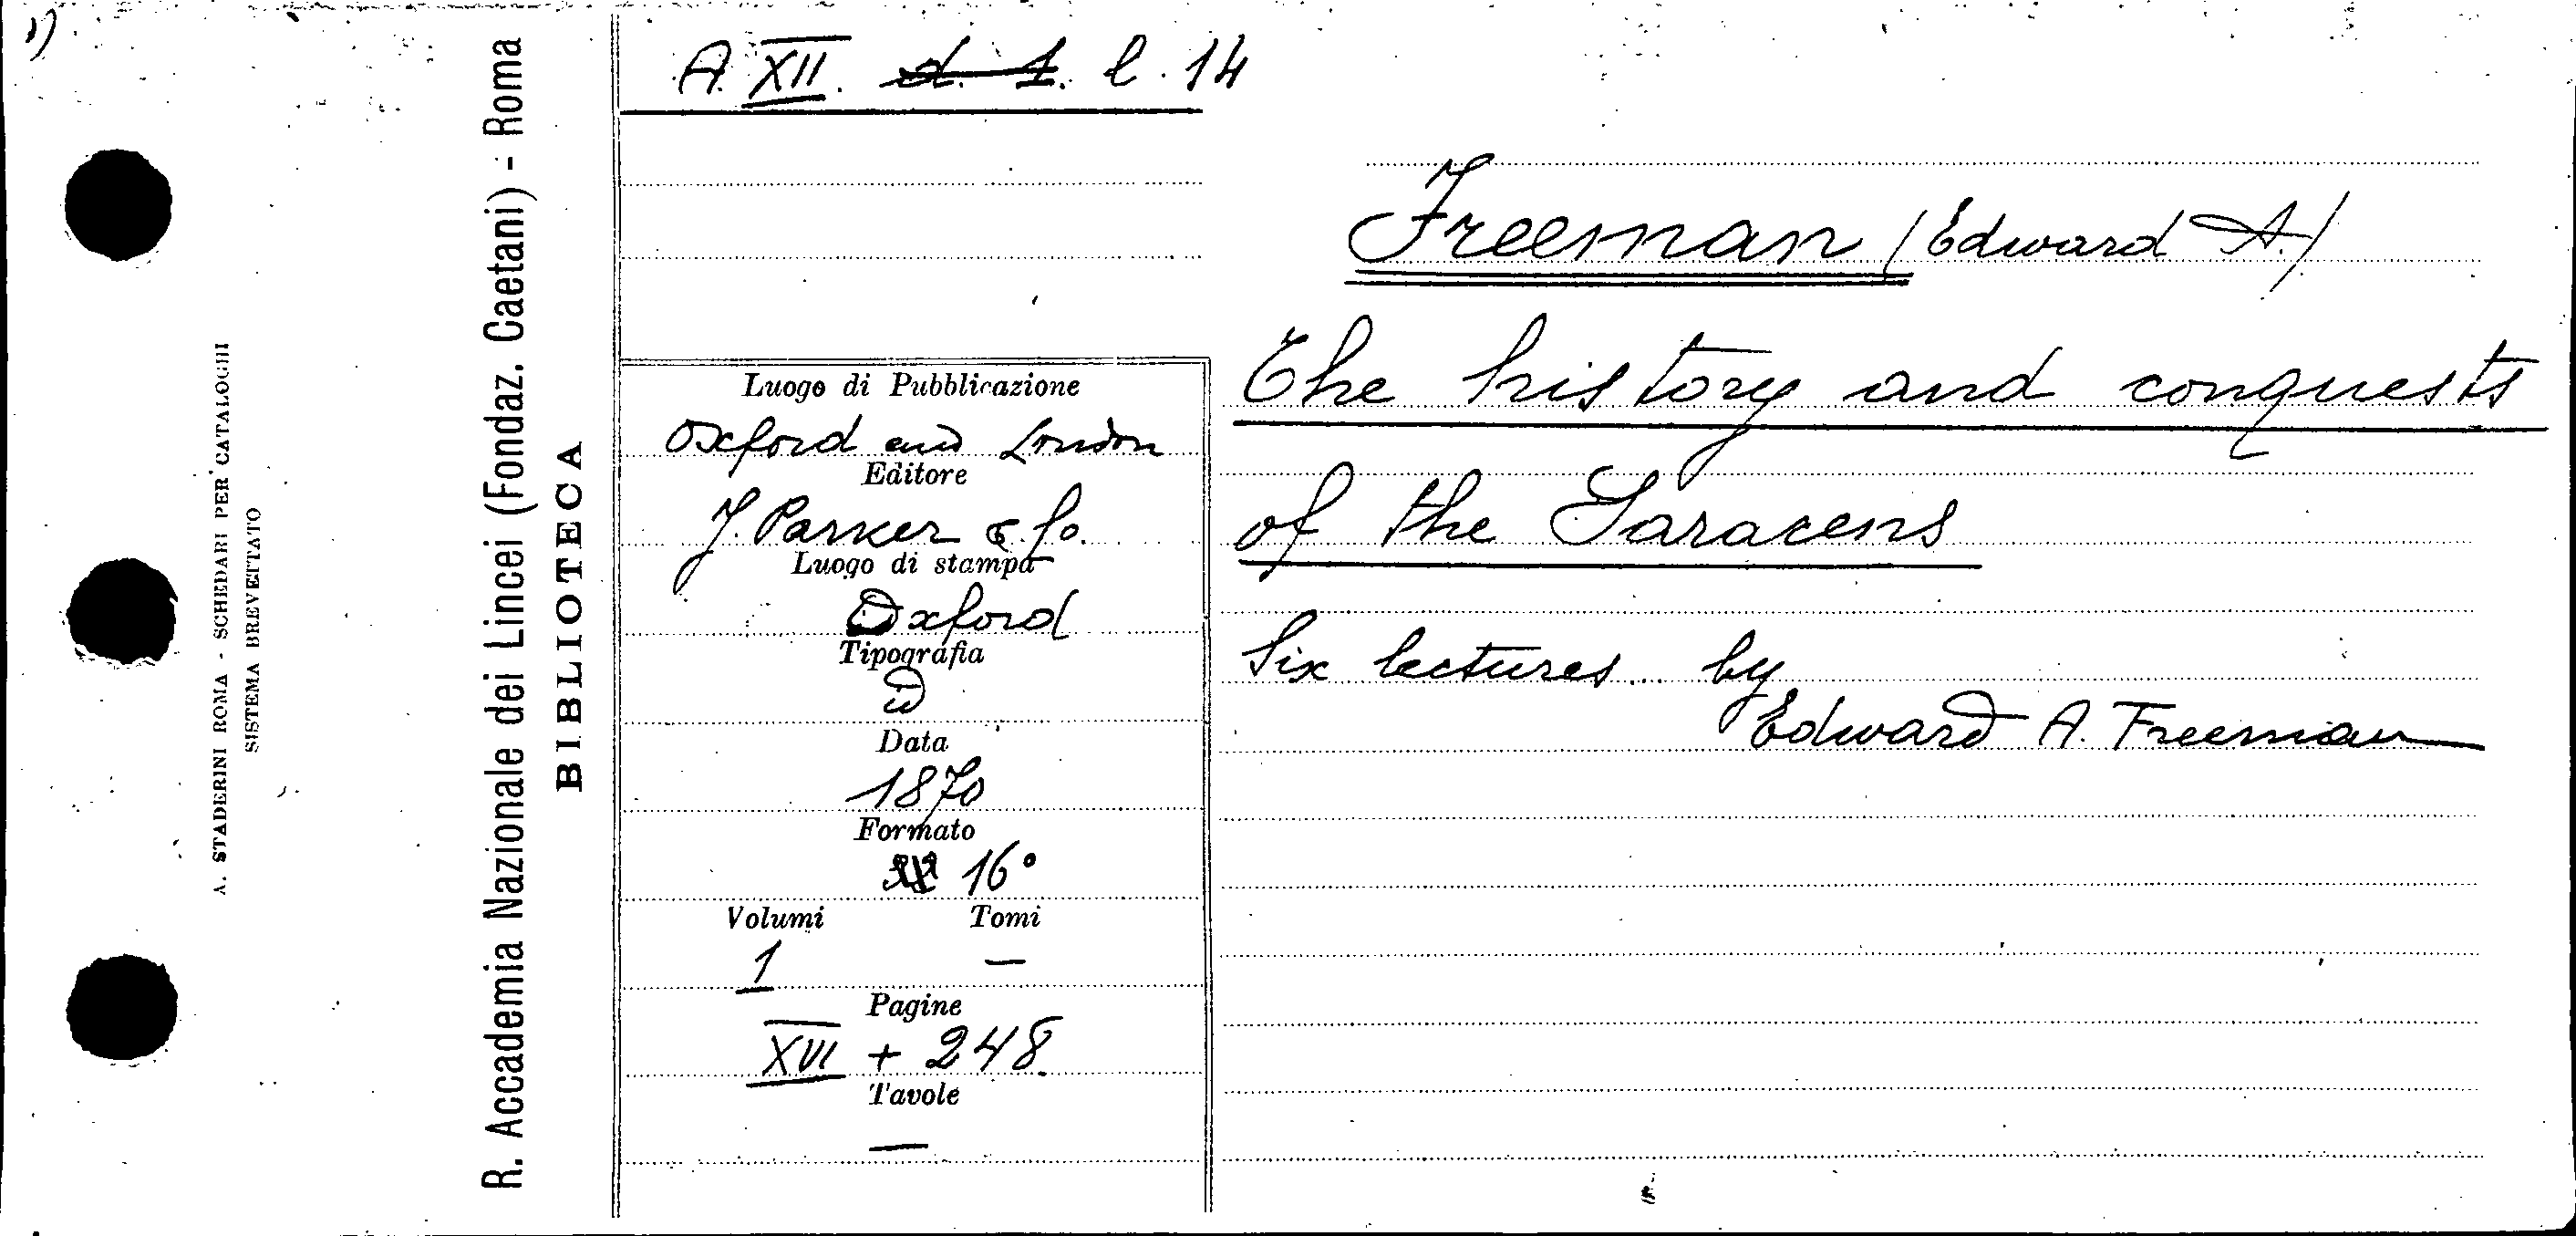 1)
A. STADERINI ROMA - SCHEDARI PER CATALOGHI
SISTEMA BREVETTATO
R. Accademia Nazionale dei Lincei (Fondaz. Caetani) - Roma
BIBLIOTECA
A. XII. d. 1. l. 14
Freeman (Edward A.)
The history and conquests
of the Saracens
Six lectures by
Edward A. Freeman
Luogo di Pubblicazione
Oxford and London
Editore
J. Parker & Co.
Luogo di stampa
Oxford
Tipografia
id
Data
1870
Formato
16°
Volumi Tomi
1 —
Pagine
XVI + 248
Tavole
—